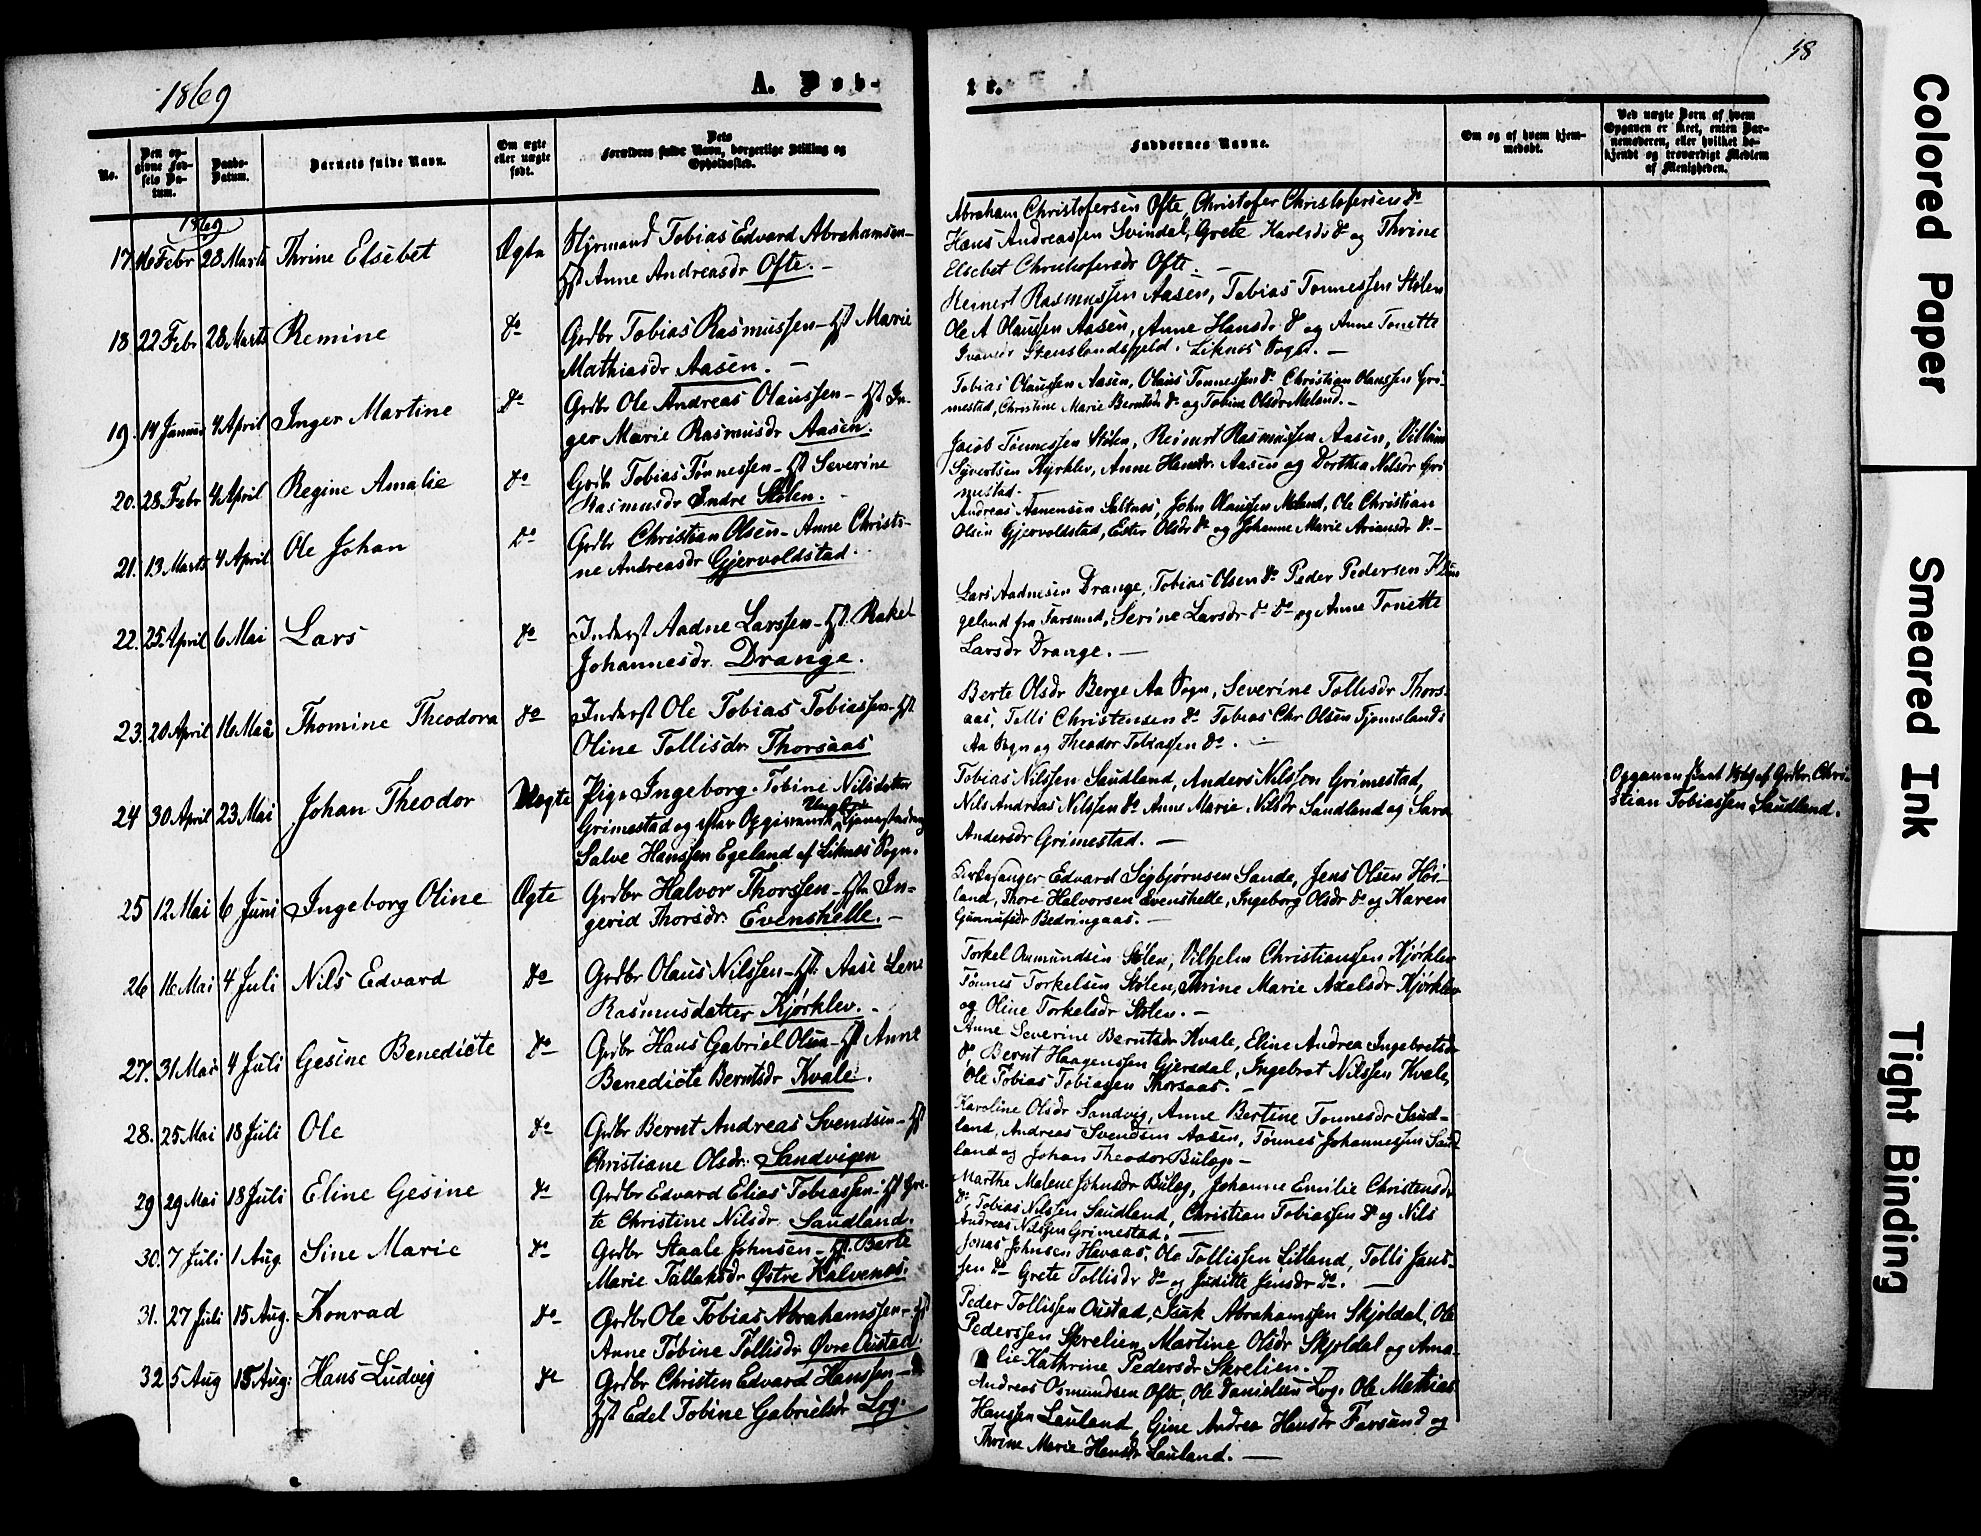 1869
A. Døb-
No.
Den op-
givne Fød-
sels Da-
tum.
Daabs-
Datum.
Barnets fulde Navn.
Om ægte
eller uægte
født.
Dets
Forældres fulde Navn, borgerlige Stilling og
Opholdssted.
1869
17 16 Febr 28 Marts Thrine Elsebet Ægte Styrmand Tobias Edvard Abrahamsen-
Hst Anne Andreasdr Ofte. -
18 22 Febr 28 Marts Remine do Grdbr Tobias Rasmussen - Hst Marie
Mathiasdr Aasen. -
19. 14 Januar 4 April Inger Martine do Grdbr Ole Andreas Olaussen - Hst In-
ger Marie Rasmusdr Aasen.
20. 28 Febr 4 April Regine Amalie do Grdbr Tobias Tønnessen - Hst Severine
Rasmusdr Indre Stølen. -
21. 13 Marts 4 April Ole Johan Do Grdbr Christian Olsen - Anne Christi-
ne Andreasdr Gjervoldstad.
22. 25 April 6 Mai Lars do Inderst Aadne Larssen - Hst. Rakel
Johannesdr. Drange.
23. 20 April 16 Mai Thomine Theodora do Inderst Ole Tobias Tobiassen - Hst
Oline Tollisdr. Thorsaas
24 30 April 23 Mai Johan Theodor Uægte Pige Ingeborg Tobine Nilsdatter
Grimestad og efter Opgivende Ungkar Tjenestedreng
Salve Hanssen Egeland af Liknes Sogn.
25 12 Mai 6 Juni Ingeborg Oline Ægte Grdbr Halvor Thorssen - Hst In-
gerid Thorsdr. Evenshelle. -
26 16 Mai 4 Juli Nils Edvard do Grdbr Olaus Nilssen - Hst. Aase Lene
Rasmusdatter Kjørklev. -
27. 31 Mai 4 Juli Gesine Benedicte do Grdbr Hans Gabriel Olsen - Hst Anne
Benedicte Berntsdr Kvale.
28. 25 Mai 18 Juli Ole do Grdbr Bernt Andreas Svendsen - Hst
Christiane Olsdr. Sandvigen
29 29 Mai 18 Juli Eline Gesine do Grdbr Edvard Elias Tobiassen - Hst Gre-
te Christine Nilsdr. Saudland.
30. 7 Juli 1 Aug Sine Marie do Grdbr Staale Johnsen - Hst. Berte
Marie Tallaksdr Østre Kalvenes.
31. 27 Juli 15 Aug. Konrad do Grdbr Ole Tobias Abrahamssen - Hst
Anne Tobine Tollisdr Øvre Oustad.
32 5 Aug 15 Aug: Hans Ludvig do Grdbr Christen Edvard Hanssen -
Hst Edel Tobine Gabrielsdr Log.
te.
58
Faddernes Navne.
Om og af hvem hjem-
medøbt.
Ved uægte Børn af hvem
Opgaven er skeet, enten Bar-
nemoderen, eller hvilket be-
kjendt og troværdigt Medlem
af Menigheden.
Abraham Christofersen Ofte, Christofer Christofersen do
Hans Andreassen Svindal, Grete Karlsdr do og Thrine
Elsebet Christofersdr Ofte. -
Reinert Rasmussen Aasen, Tobias Tonnessen Stølen
Ole A Olaussen Aasen, Anne Hansdr. do og Anne Tonette
Stenslandsfjeld. Liknes Sogn. -
Tobias Olaussen Aasen, Olaus Tonnessen do Christian Olaussen Gri-
mestad, Christine Marie Berntsdr do og Tobine Olsdr Meland. -
Jacob Tønnessen Stølen, Reinert Rasmussen Aasen, Villum
Syvertsen Kjørklev, Anne Hansdr. Aasen og Dorthea Nilsdr Gri
mestad.
Andreas Aanensen Saltnes, John Olaussen Meland, Ole Christian
Olsen Gjervoldstad, Ester Olsdr do og Johanne Marie Ariansdr do -
Lars Aadnesen Drange, Tobias Olsen do Peder Pedersen
geland fra Farsund, Serine Larsdr do Do og Anne Tonette
Larsdr Drange. -
Berte Olsdr Berge Aa Sogn, Severine Tollisdr Thors-
aas, Tolli Christensen do Tobias Chr Olsen Tjomslands
Aa Sogn og Theodor Tobiassen do. -
Tobias Nilssen Saudland, Anders Nilsson Grimestad,
Nils Andreas Nilssen do Anne Marie Nilsdr Saudland og Sara
Andersdr Grimestad. -
Kirkesanger Edvard Sigbjørnsen Sande, Jens Olsen Høi-
land, Thore Halvorsen Evenshelle, Ingeborg Olsdr do og Karen
Gunnufsdr Bedringaas. -
Torkel Omundsen Stølen, Vilhelm Christianssen Kjørklev
Tønnes Torkelsen Stølen, Thrine Marie Axelsdr Kjørklev
og Oline Torkelsdr Stølen. -
Anne Severine Berntsdr Kvale, Eline Andrea Ingebretsdr
do Bernt Haagenssen Gjersdal, Ingebret Nilssen Kvale,
Ole Tobias Tobiassen Thorsaas. -
Karoline Olsdr Sandvig, Anne Bertine Tonnesdr Saud-
land, Andreas Svendsen Aasen, Tønnes Johannessen Saud
land og Johan Theodor Buleg. -
Marthe Malene Johnsdr Buleg, Johanne Emilie Christensdr
do, Tobias Nilssen Saudland, Christian Tobiassen do og Nils
Andreas Nilssen Grimestad. -
Jonas Johnsen Havaas, Ole Tollissen Litland, Tolli Jens-
sen do Grete Tollisdr do og Juditte Jensdr do. -
Peder Tollissen Oustad, Isak Abrahamssen Skjoldal, Ole
Pederssen Skrelien, Martine Olsdr Skjoldal og Ama-
lie Kathrine Pedersdr Skrelien. -
Andreas Osmundsen Ofte, Ole Danielsen Log, Ole Mathias
Hanssen Lauland, Gine Andrea Hansdr Farsund og
Thrine Marie Hansdr Lauland. -
Opgaven skeet af Grdbr. Chri-
stian Tobiassen Saudland.
Colored Paper
Smeared Ink
Tight Binding